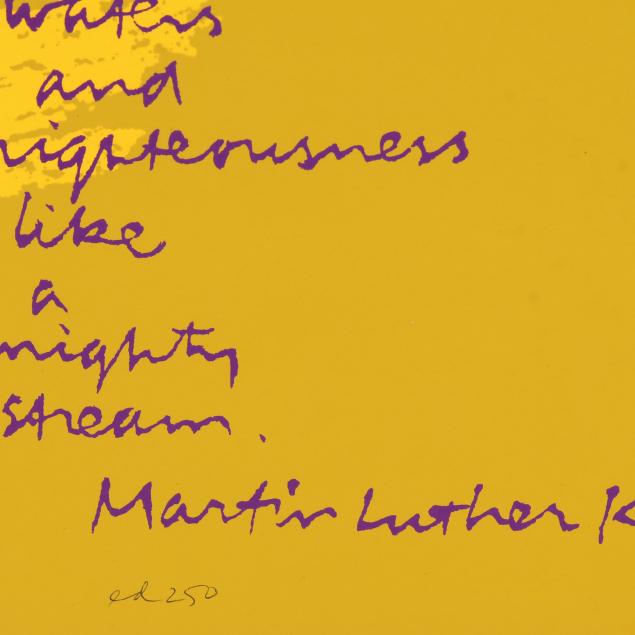 waters
and
righteousness
like
a
mighty
stream.
Martin Luther K
ed 250